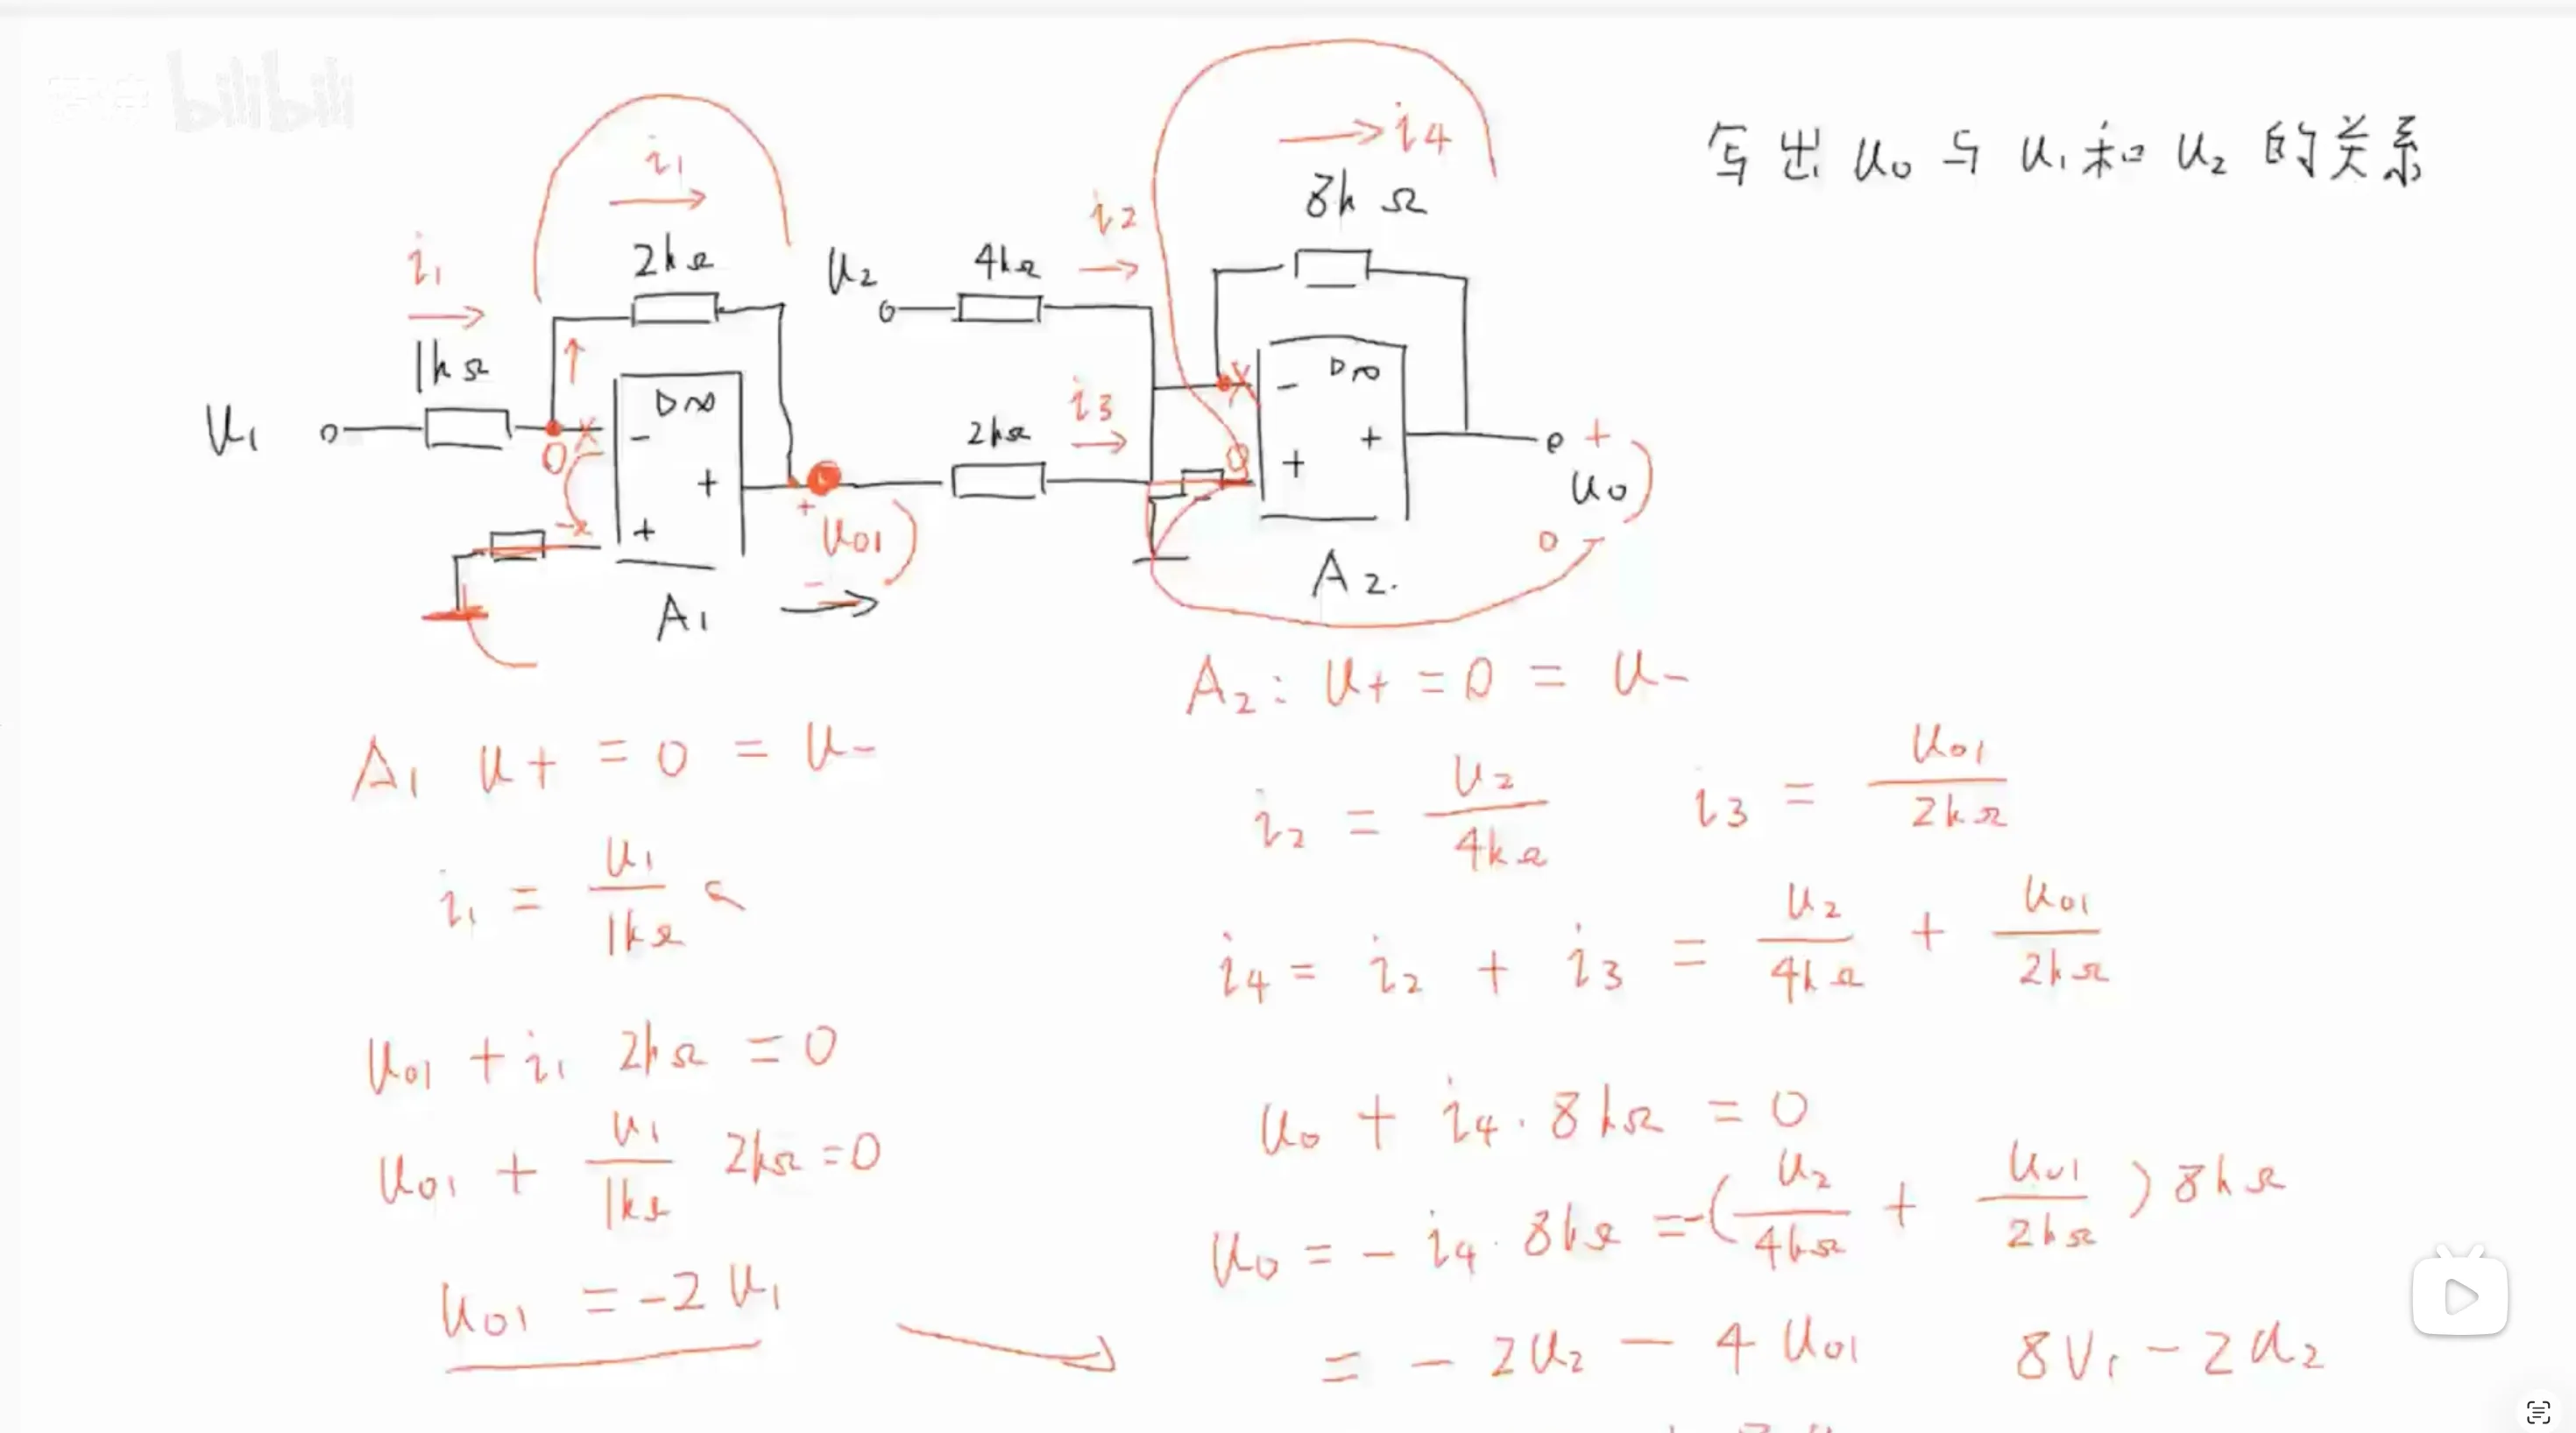 bilibili
写出 u₀ 与 u₁ 和 u₂ 的关系
i₁
i₄
8kΩ
i₂
i₁
2kΩ
u₂
4kΩ
1kΩ
D∞
D∞
i₃
u₁
0
-
-
2kΩ
+
+
+
0
+
u₀
+
+
u₀₁
-
0
A₁
A₂.
A₂: u+ = 0 = u-
A₁ u+ = 0 = u-
i₂ = u₂/4kΩ i₃ = u₀₁/2kΩ
i₁ = u₁/1kΩ
i₄ = i₂ + i₃ = u₂/4kΩ + u₀₁/2kΩ
u₀₁ + i₁ 2kΩ = 0
u₀ + i₄ · 8kΩ = 0
u₀₁ + u₁/1kΩ 2kΩ = 0
u₀ = - i₄ · 8kΩ = -(u₂/4kΩ + u₀₁/2kΩ) 8kΩ
u₀₁ = -2 u₁
= - 2u₂ - 4 u₀₁ 8V₁ - 2u₂